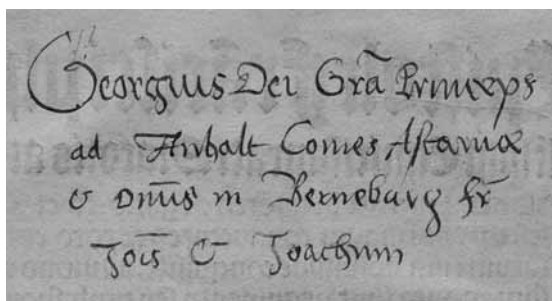 Georgius Dei Grã Princeps
ad Anhalt Comes Ascaniæ
& Dnũs in Berneburg fr̃
Jois̃ & Joachim